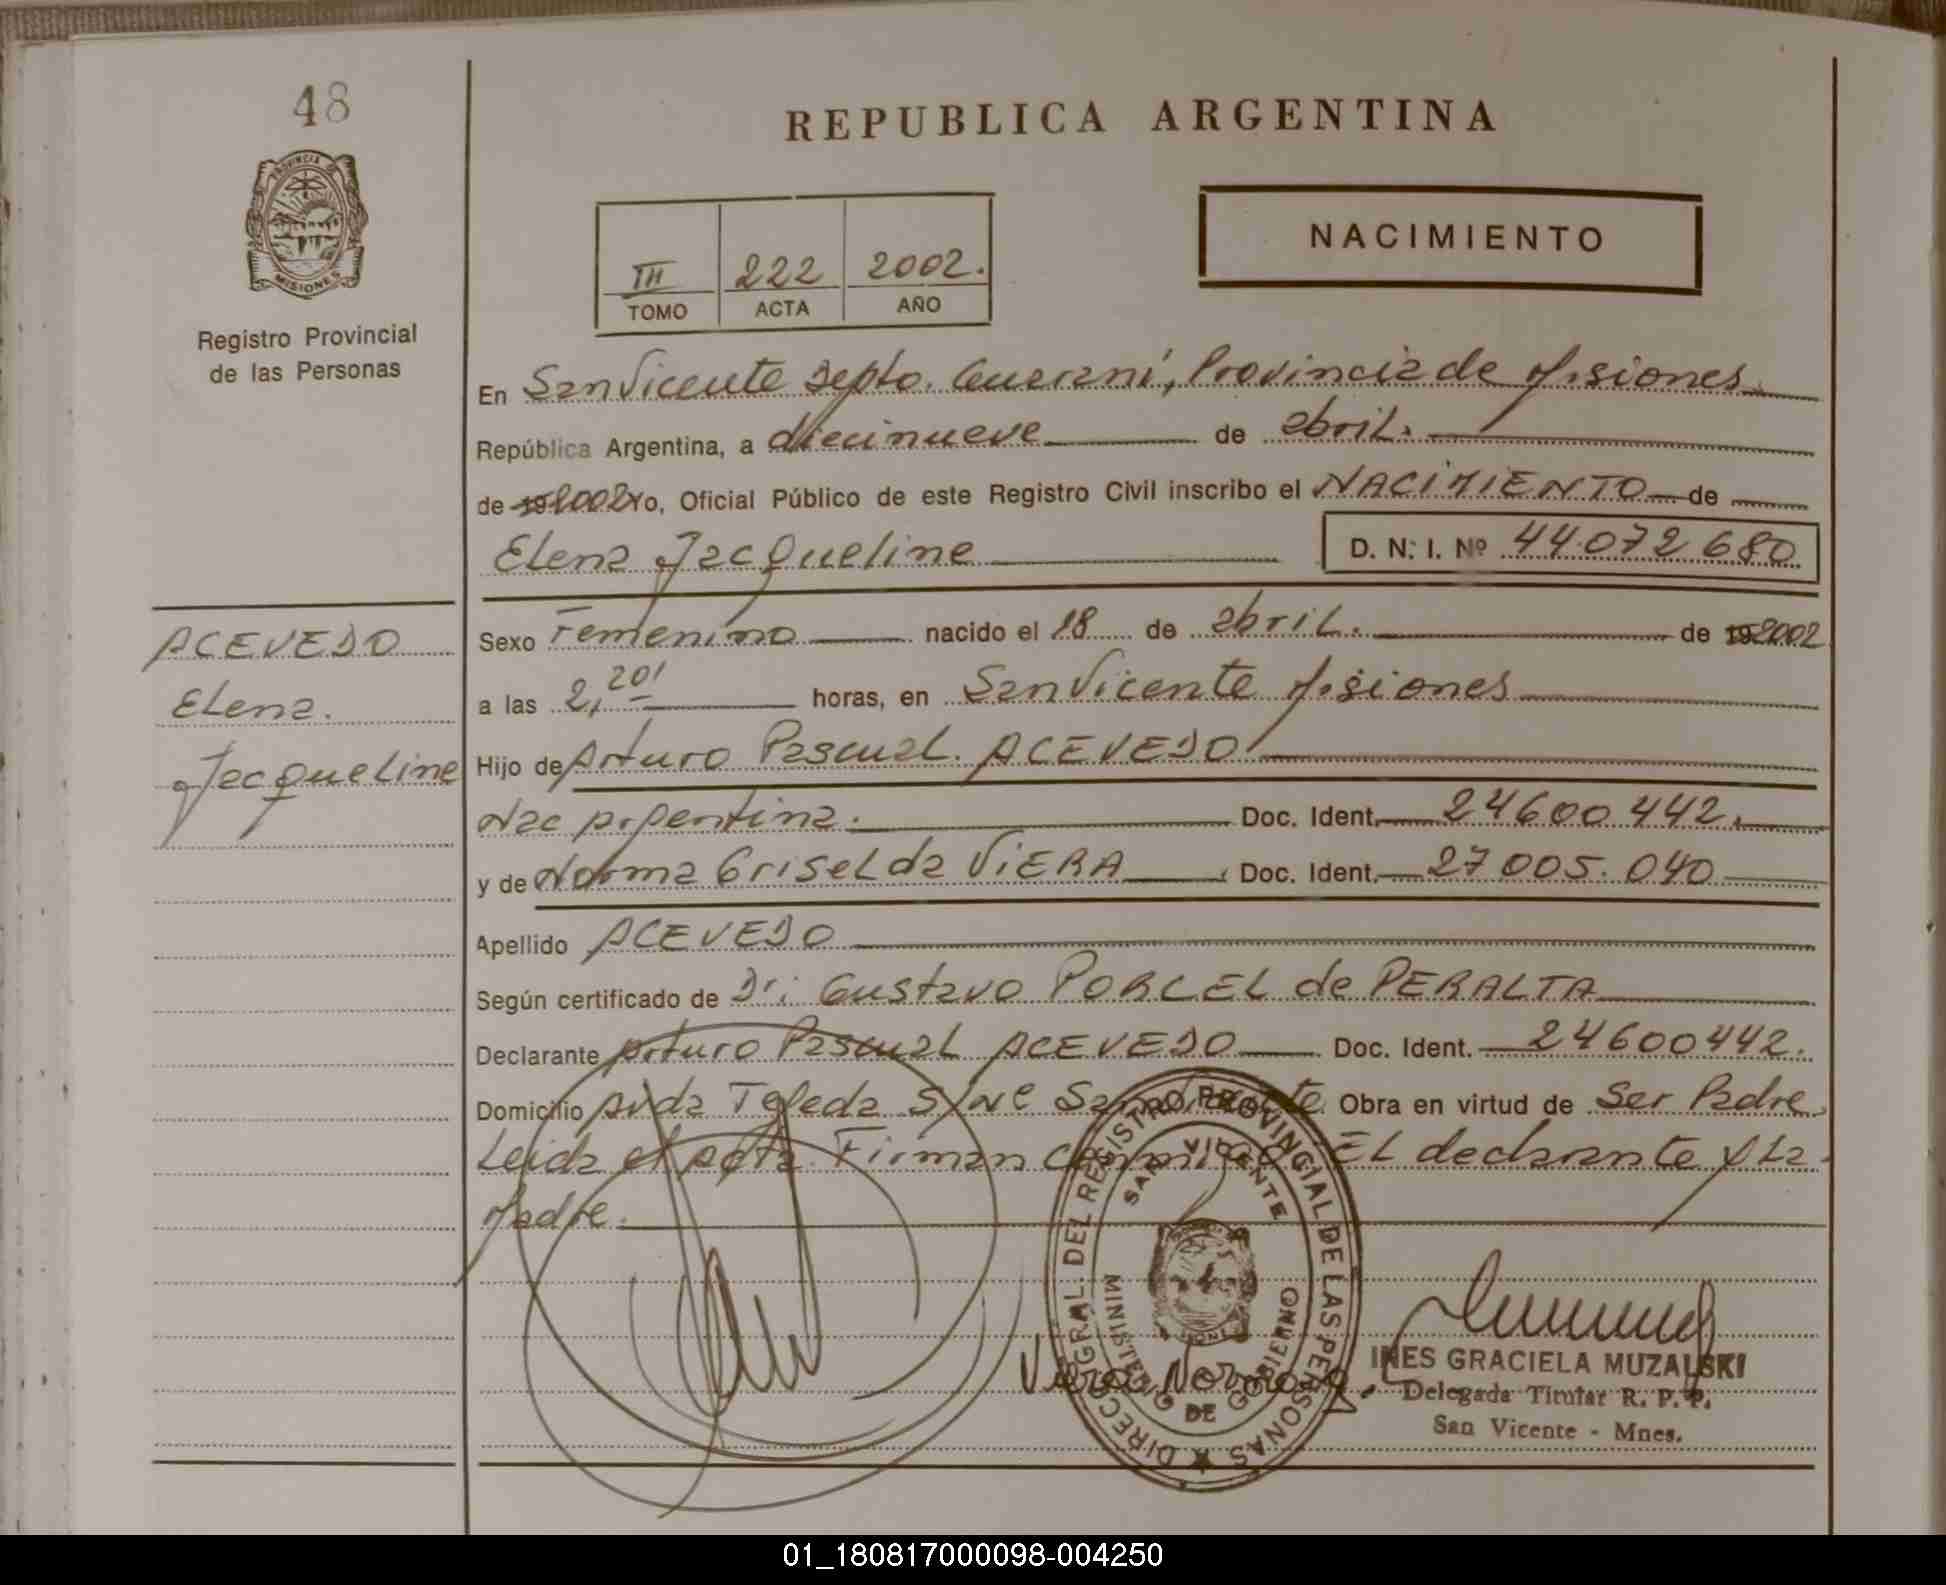 48
PROVINCIA DE
MISIONES
Registro Provincial
de las Personas
REPUBLICA ARGENTINA
III 222 2002.
TOMO ACTA AÑO
NACIMIENTO
En San Vicente Depto. Guaraní, Provincia de Misiones.
República Argentina, a diecinueve de abril.
de 19 2002 Yo, Oficial Público de este Registro Civil inscribo el NACIMIENTO de
Elena Jacqueline D. N. I. Nº 44.072 680
ACEVEDO
Elena.
Jacqueline
Sexo Femenino nacido el 18 de abril. de 19 2002
a las 2,20' horas, en San Vicente Misiones
Hijo de Arturo Pascual ACEVEDO
Nac Argentina. Doc. Ident. 24600 442.
y de Norma Griselda ViERA Doc. Ident. 27 005. 040
Apellido ACEVEDO
Según certificado de Dr: Gustavo PORCEL de PERALTA
Declarante Arturo Pascual ACEVEDO Doc. Ident. 24600442.
Domicilio Avda Tejeda S/Nº San Vicente Obra en virtud de Ser Padre.
Leida el Acta Firman Conmigo EL declarante y La
Madre.
DIREC. GRAL. DEL REGISTRO PROVINCIAL DE LAS PERSONAS
SAN VICENTE
MINISTERIO DE GOBIERNO
Viera Norma G.
INES GRACIELA MUZALSKI
Delegada Titular R. P. P.
San Vicente - Mnes.
01_180817000098-004250